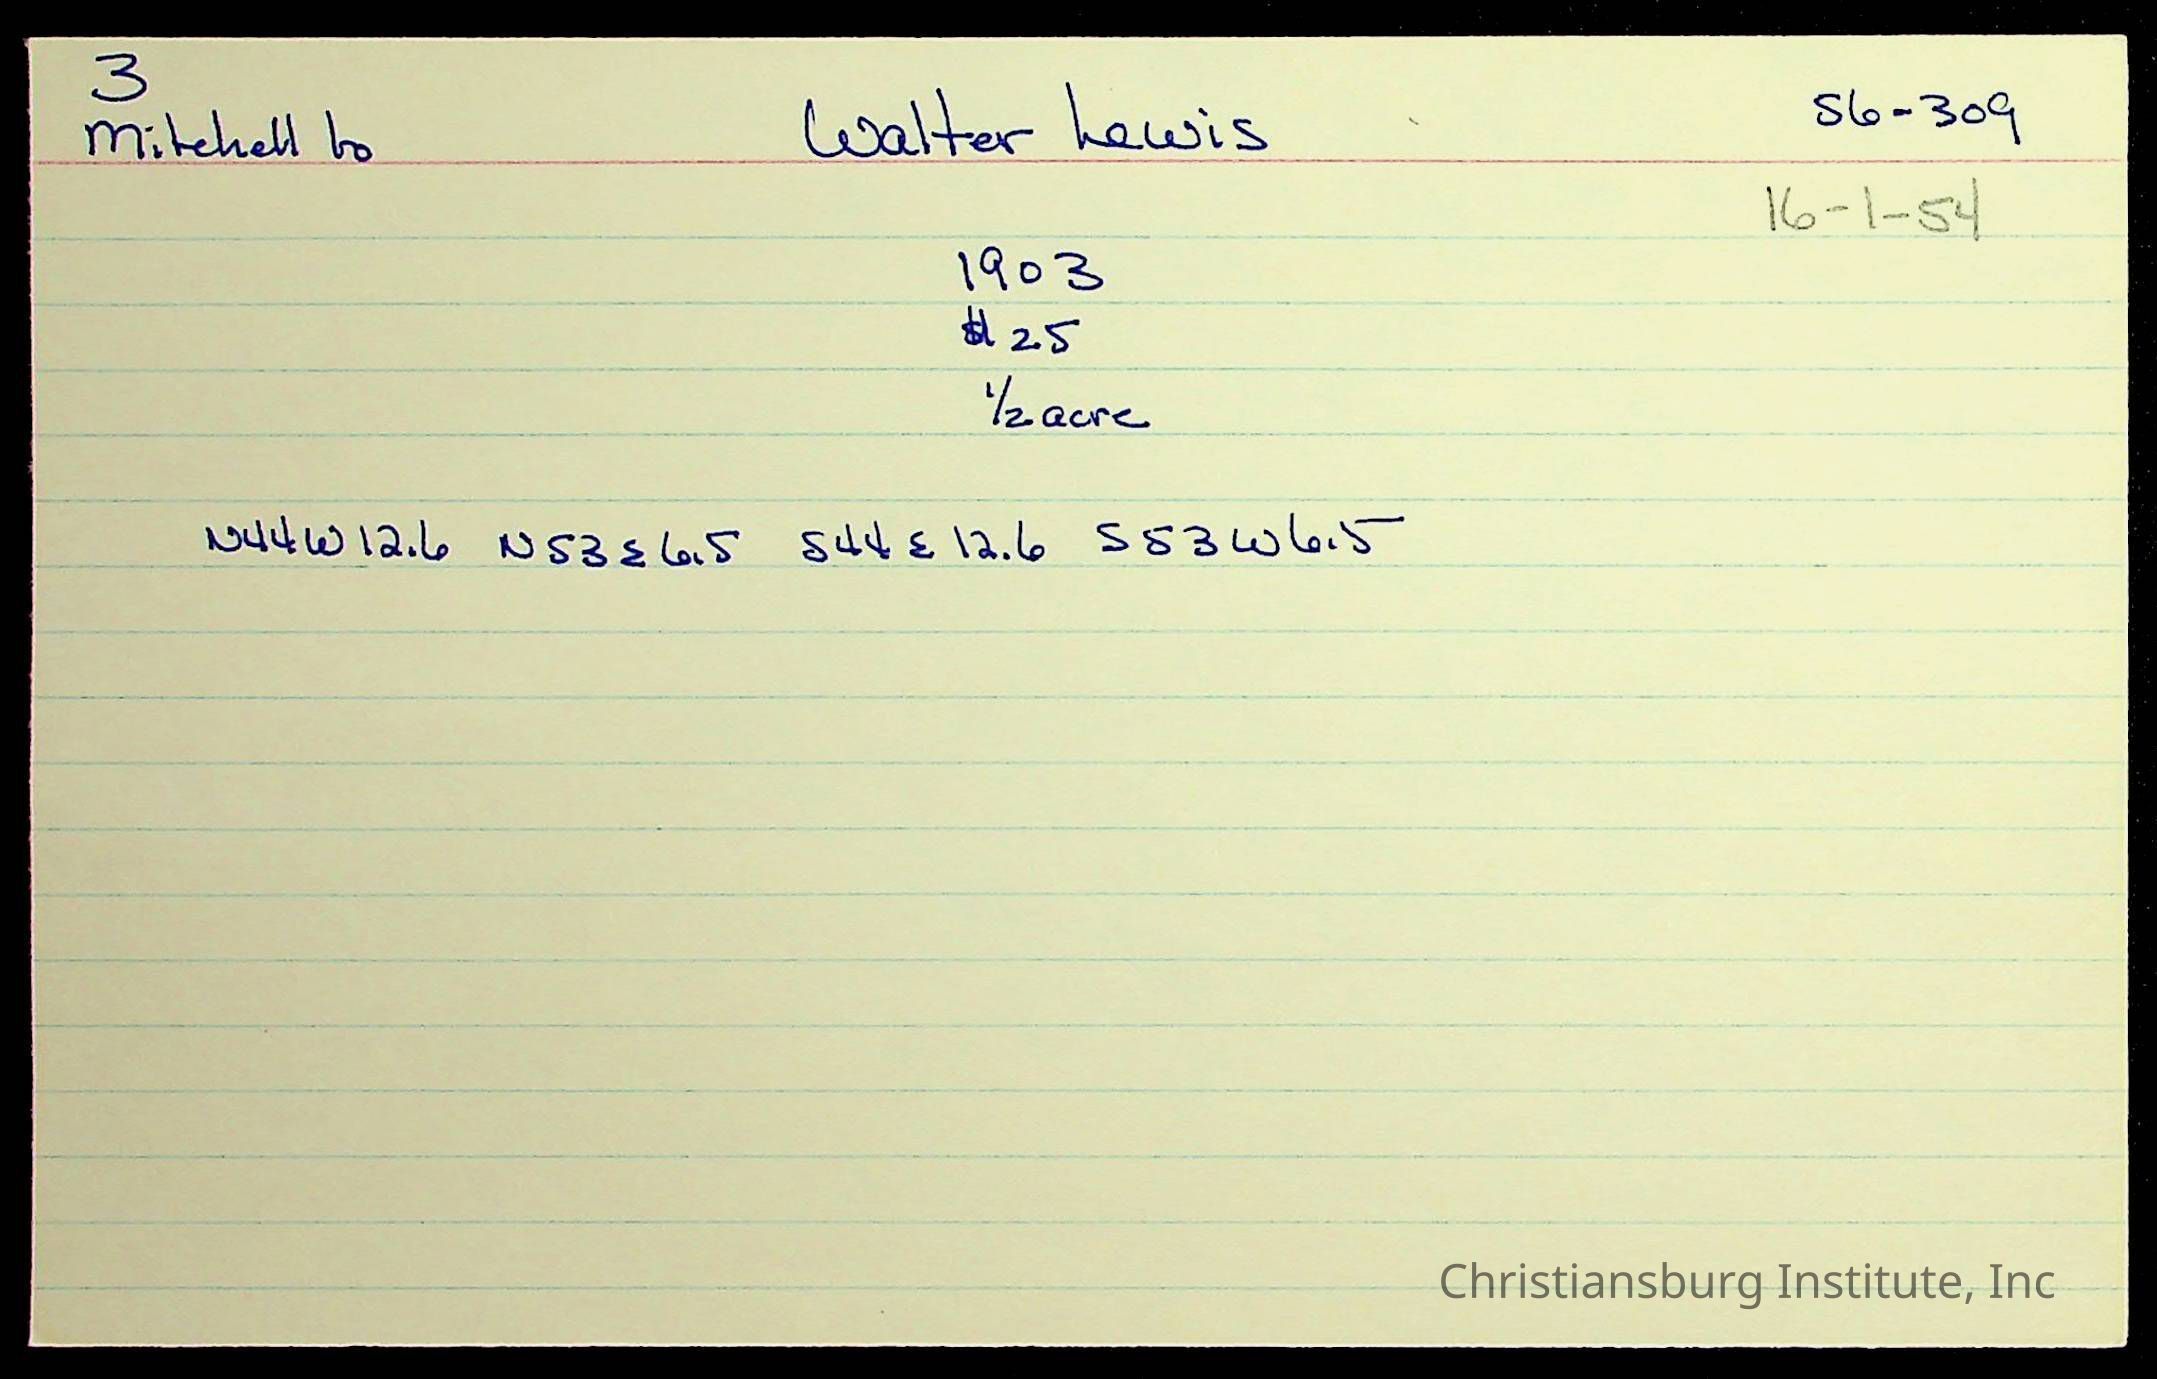 3
Mitchell to Walter Lewis 56-309
16-1-54
1903
$25
1/2 acre
N44W12.6 N53E6.5 S44E12.6 S53W6.5
Christiansburg Institute, Inc